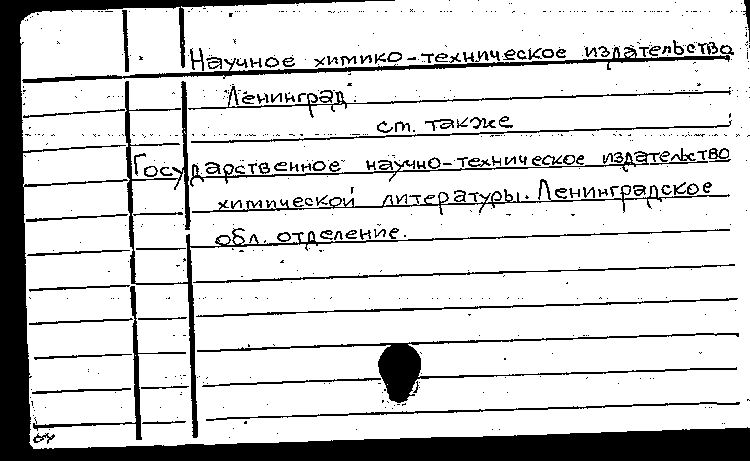 Научное химико-техническое издательство
Ленинград.
см. также
Государственное научно-техническое издательство
химической литературы. Ленинградское
обл. отделение.